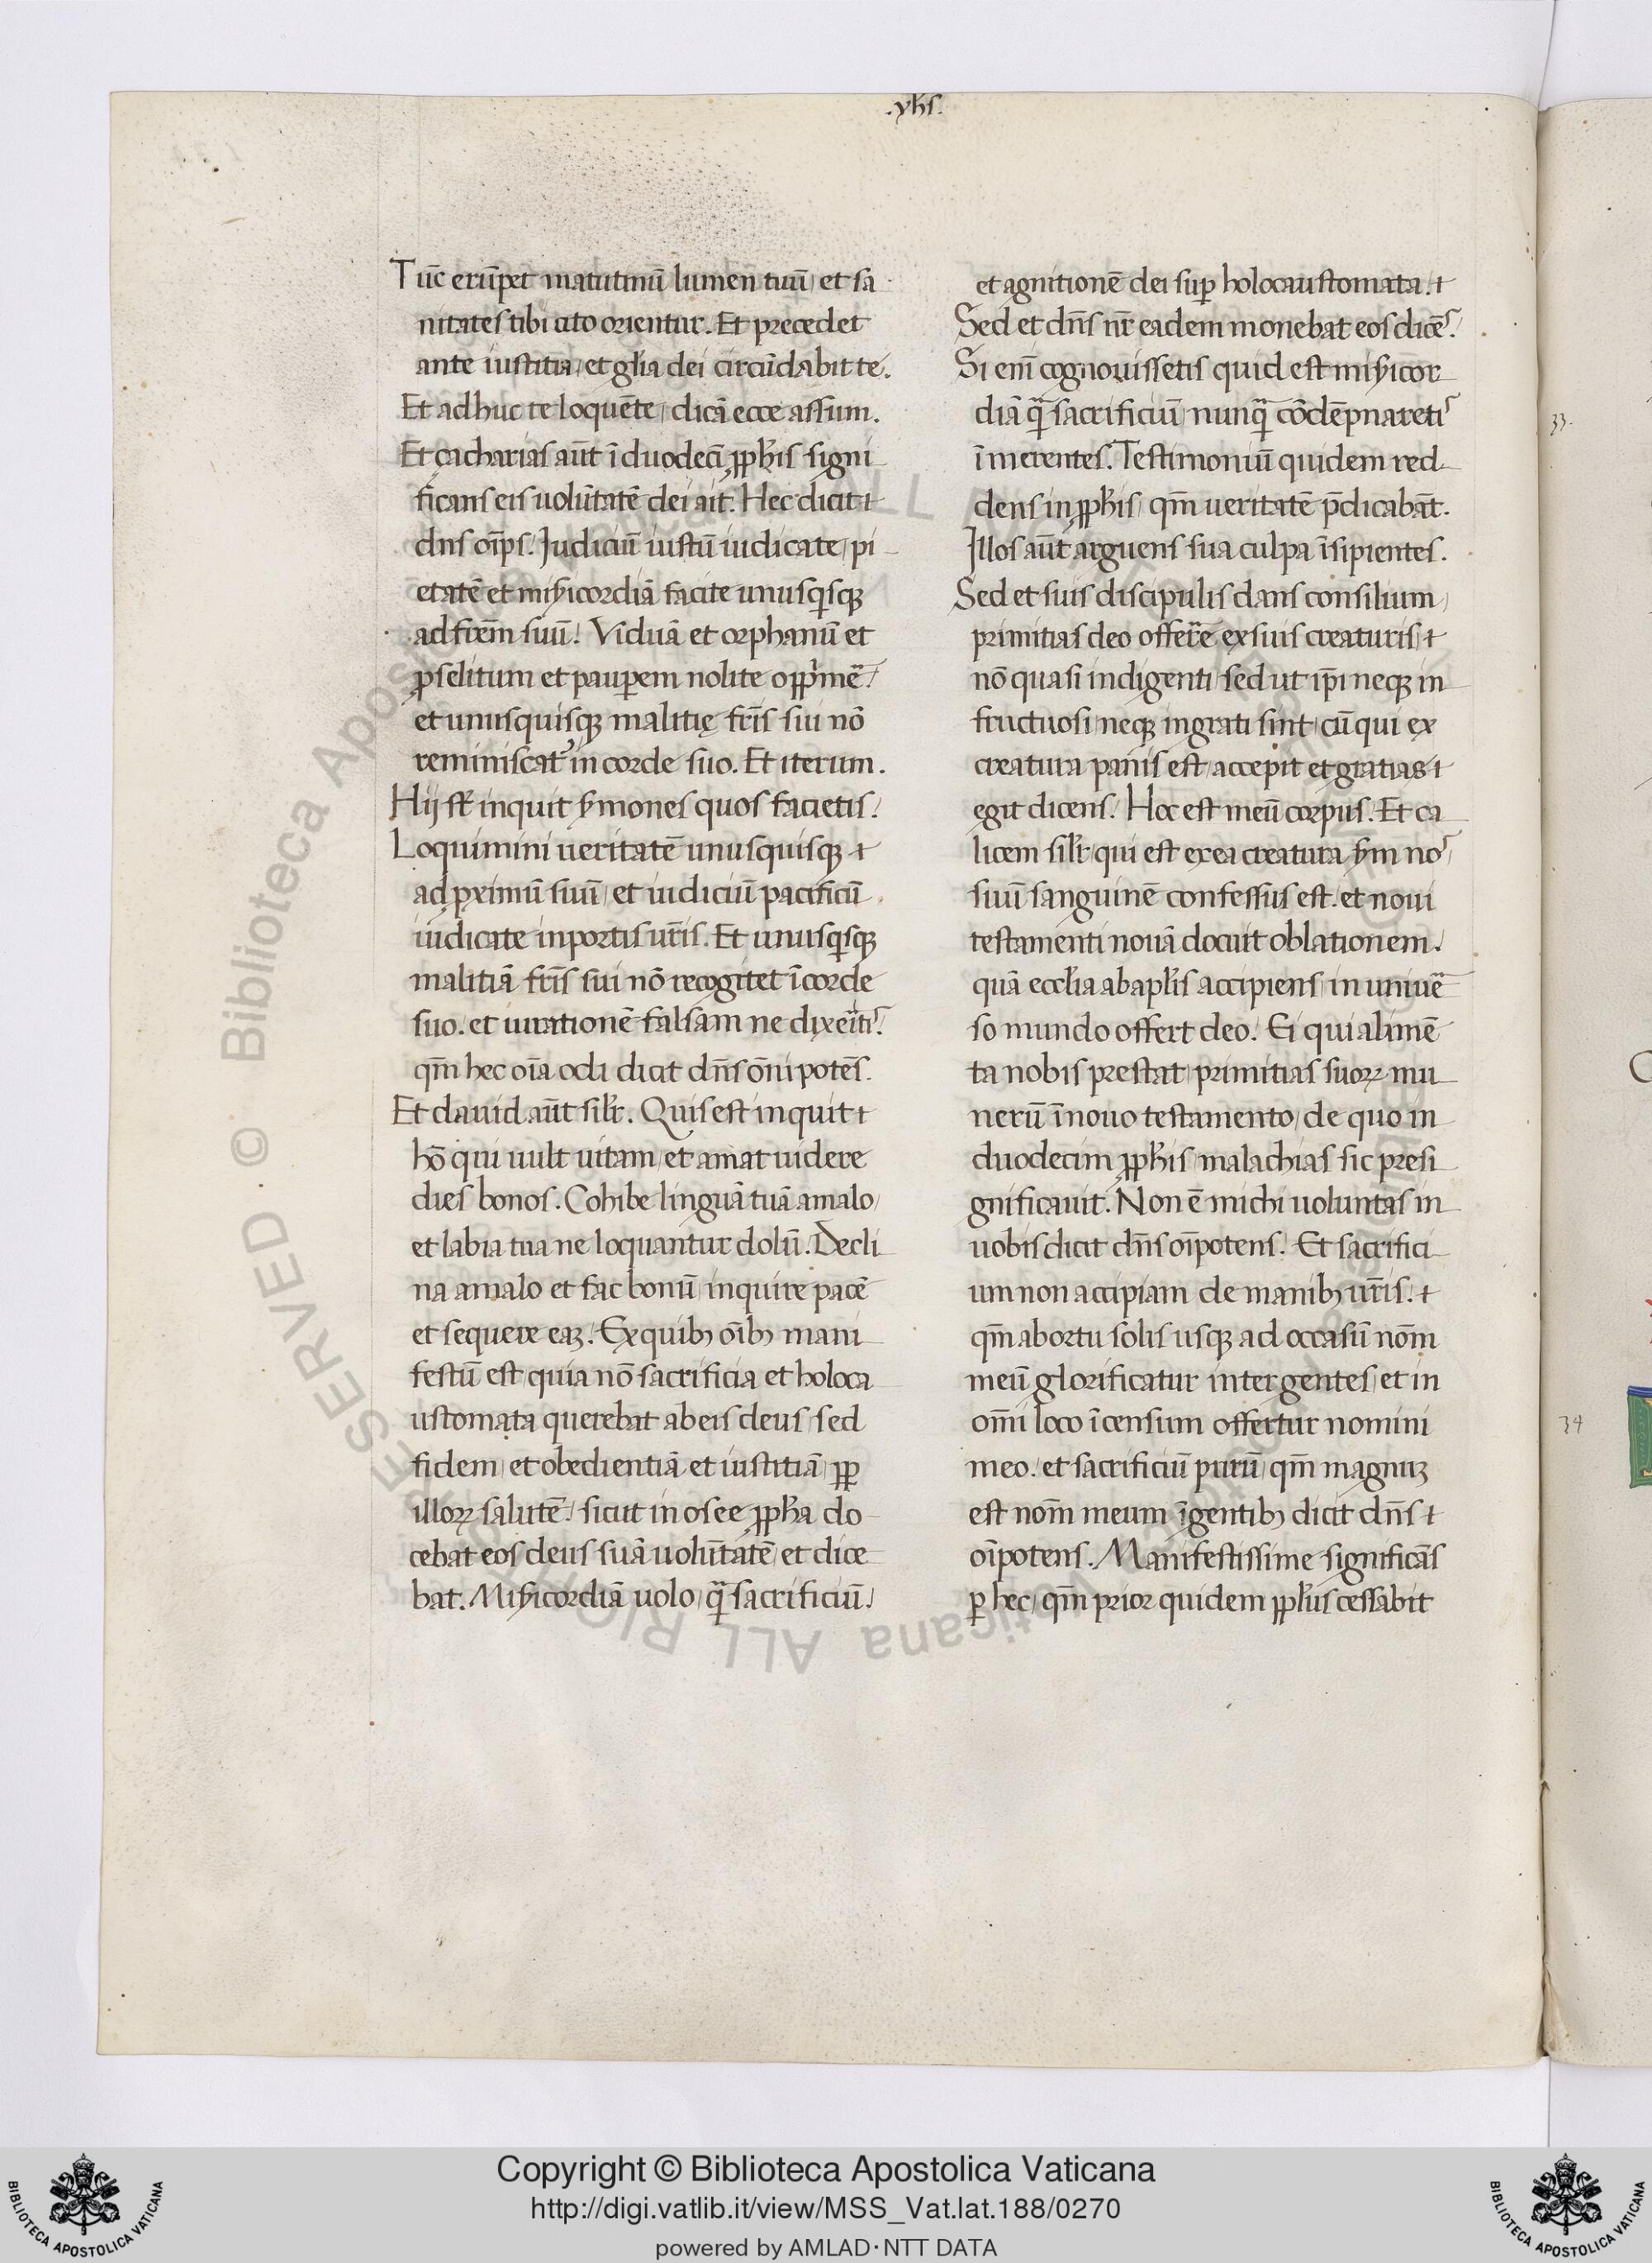 .yhs.
Tūc erūpet matutinū lumen tuū, et sa
nitates tibi cito orientur. Et precedet
ante iustitia, et glīa dei circūdabit te.
Et adhuc te loquēte, dicā ecce assum.
Et çacharias aūt ī duodecī ꝓph̄is signi
ficans eis volūtatē dei ait. Hec dicit
dn̄s oīps. Judiciū iustū iudicate, pi
etatē et mīsicordiā facite unusqisqꝫ
ad frēm suū. Viduā et orphanū et
ꝓselitum et pauꝑem nolite opp̄mē.
et unusquisqꝫ malitię fr̄is sui nō
reminiscat᷑ in corde suo. Et iterum.
Hij st̄ inquit s̄mones quos facietis.
Loquimini ueritatē unusquisqꝫ
ad ꝓximū suū, et iudiciū pacificū
iudicate in portis ur̄is. Et unusqisqꝫ
malitiā fr̄is sui nō recogitet ī corde
suo. et iurationē falsam ne dixeīti᷑.
qm̄ hec oīa odi dicit dn̄s oīpotēs.
Et dauid aūt silr̄. Quis est inquit
hō qui uult uitam, et amat uidere
dies bonos. Cohibe linguā tuā a malo,
et labia tua ne loquantur dolū. Decli
na a malo et fac bonū, inquire pacē
et sequere eaꝫ. Ex quibꝫ oībꝫ mani
festū est quia nō sacrificia et holoca
ustomata querebat ab eis deus, sed
fidem, et obedientiā et iustitiā, ꝓp̄
illoꝝ salutē. sicut in osee ꝓph̄a do
cebat eos deus suā volūtatē, et dice
bat. Mīsicordiā uolo, qͣ sacrificiū.
et agnitionē dei suꝑ holocaustomata.
Sed et dn̄s nr̄ eadem monebat eos dicē᷑.
Si enī cognouissetis quid est mīsicor
diā qͣ sacrificiū, nunqͣ cōdēpnareti᷑
īmerentes. Testimoniū quidem red
dens in ꝓph̄is, qm̄ ueritatē p̄dicabāt.
Illos aūt arguens sua culpa īsipientes.
Sed et suis discipulis dans consilium,
primitias deo offerē ex suis creaturis,
nō quasi indigenti, sed ut ip̄i neqꝫ in
fructuosi, neqꝫ ingrati sint, cū qui ex
creatura panis est, accepit et gratias
egit dicens. Hoc est meū corpus. Et ca
licem silr̄, qui est ex ea creatura s̄m no᷑,
suū sanguinē confessus est. et noui
testamenti nouā docuit oblationem.
quā ecclīa ab apl̄is accipiens, in uniuē
so mundo offert deo. Ei qui alimē
ta nobis prestat, primitias suoꝝ mu
nerū ī nouo testamento, de quo in
duodecim ꝓph̄is, malachias sic presi
gnificauit. Non ē michi uoluntas in
uobis dicit dn̄s oīpotens. Et sacrifici
um non accipiam de manibꝫ ur̄is.
qm̄ ab ortu solis usqꝫ ad occasū nōm
meū glorificatur inter gentes, et in
omī loco īcensum offertur nomini
meo. et sacrificiū purū, qm̄ magnuꝫ
est nom̄ meum ī gentibꝫ dicit dn̄s
oīpotens. Manifestissime significās
ꝑ hec, qm̄ prior quidem ppl̄us cessabit
33.
34
Copyright © Biblioteca Apostolica Vaticana
http://digi.vatlib.it/view/MSS_Vat.lat.188/0270
powered by AMLAD·NTT DATA
BIBLIOTECA APOSTOLICA VATICANA
BIBLIOTECA APOSTOLICA VATICANA